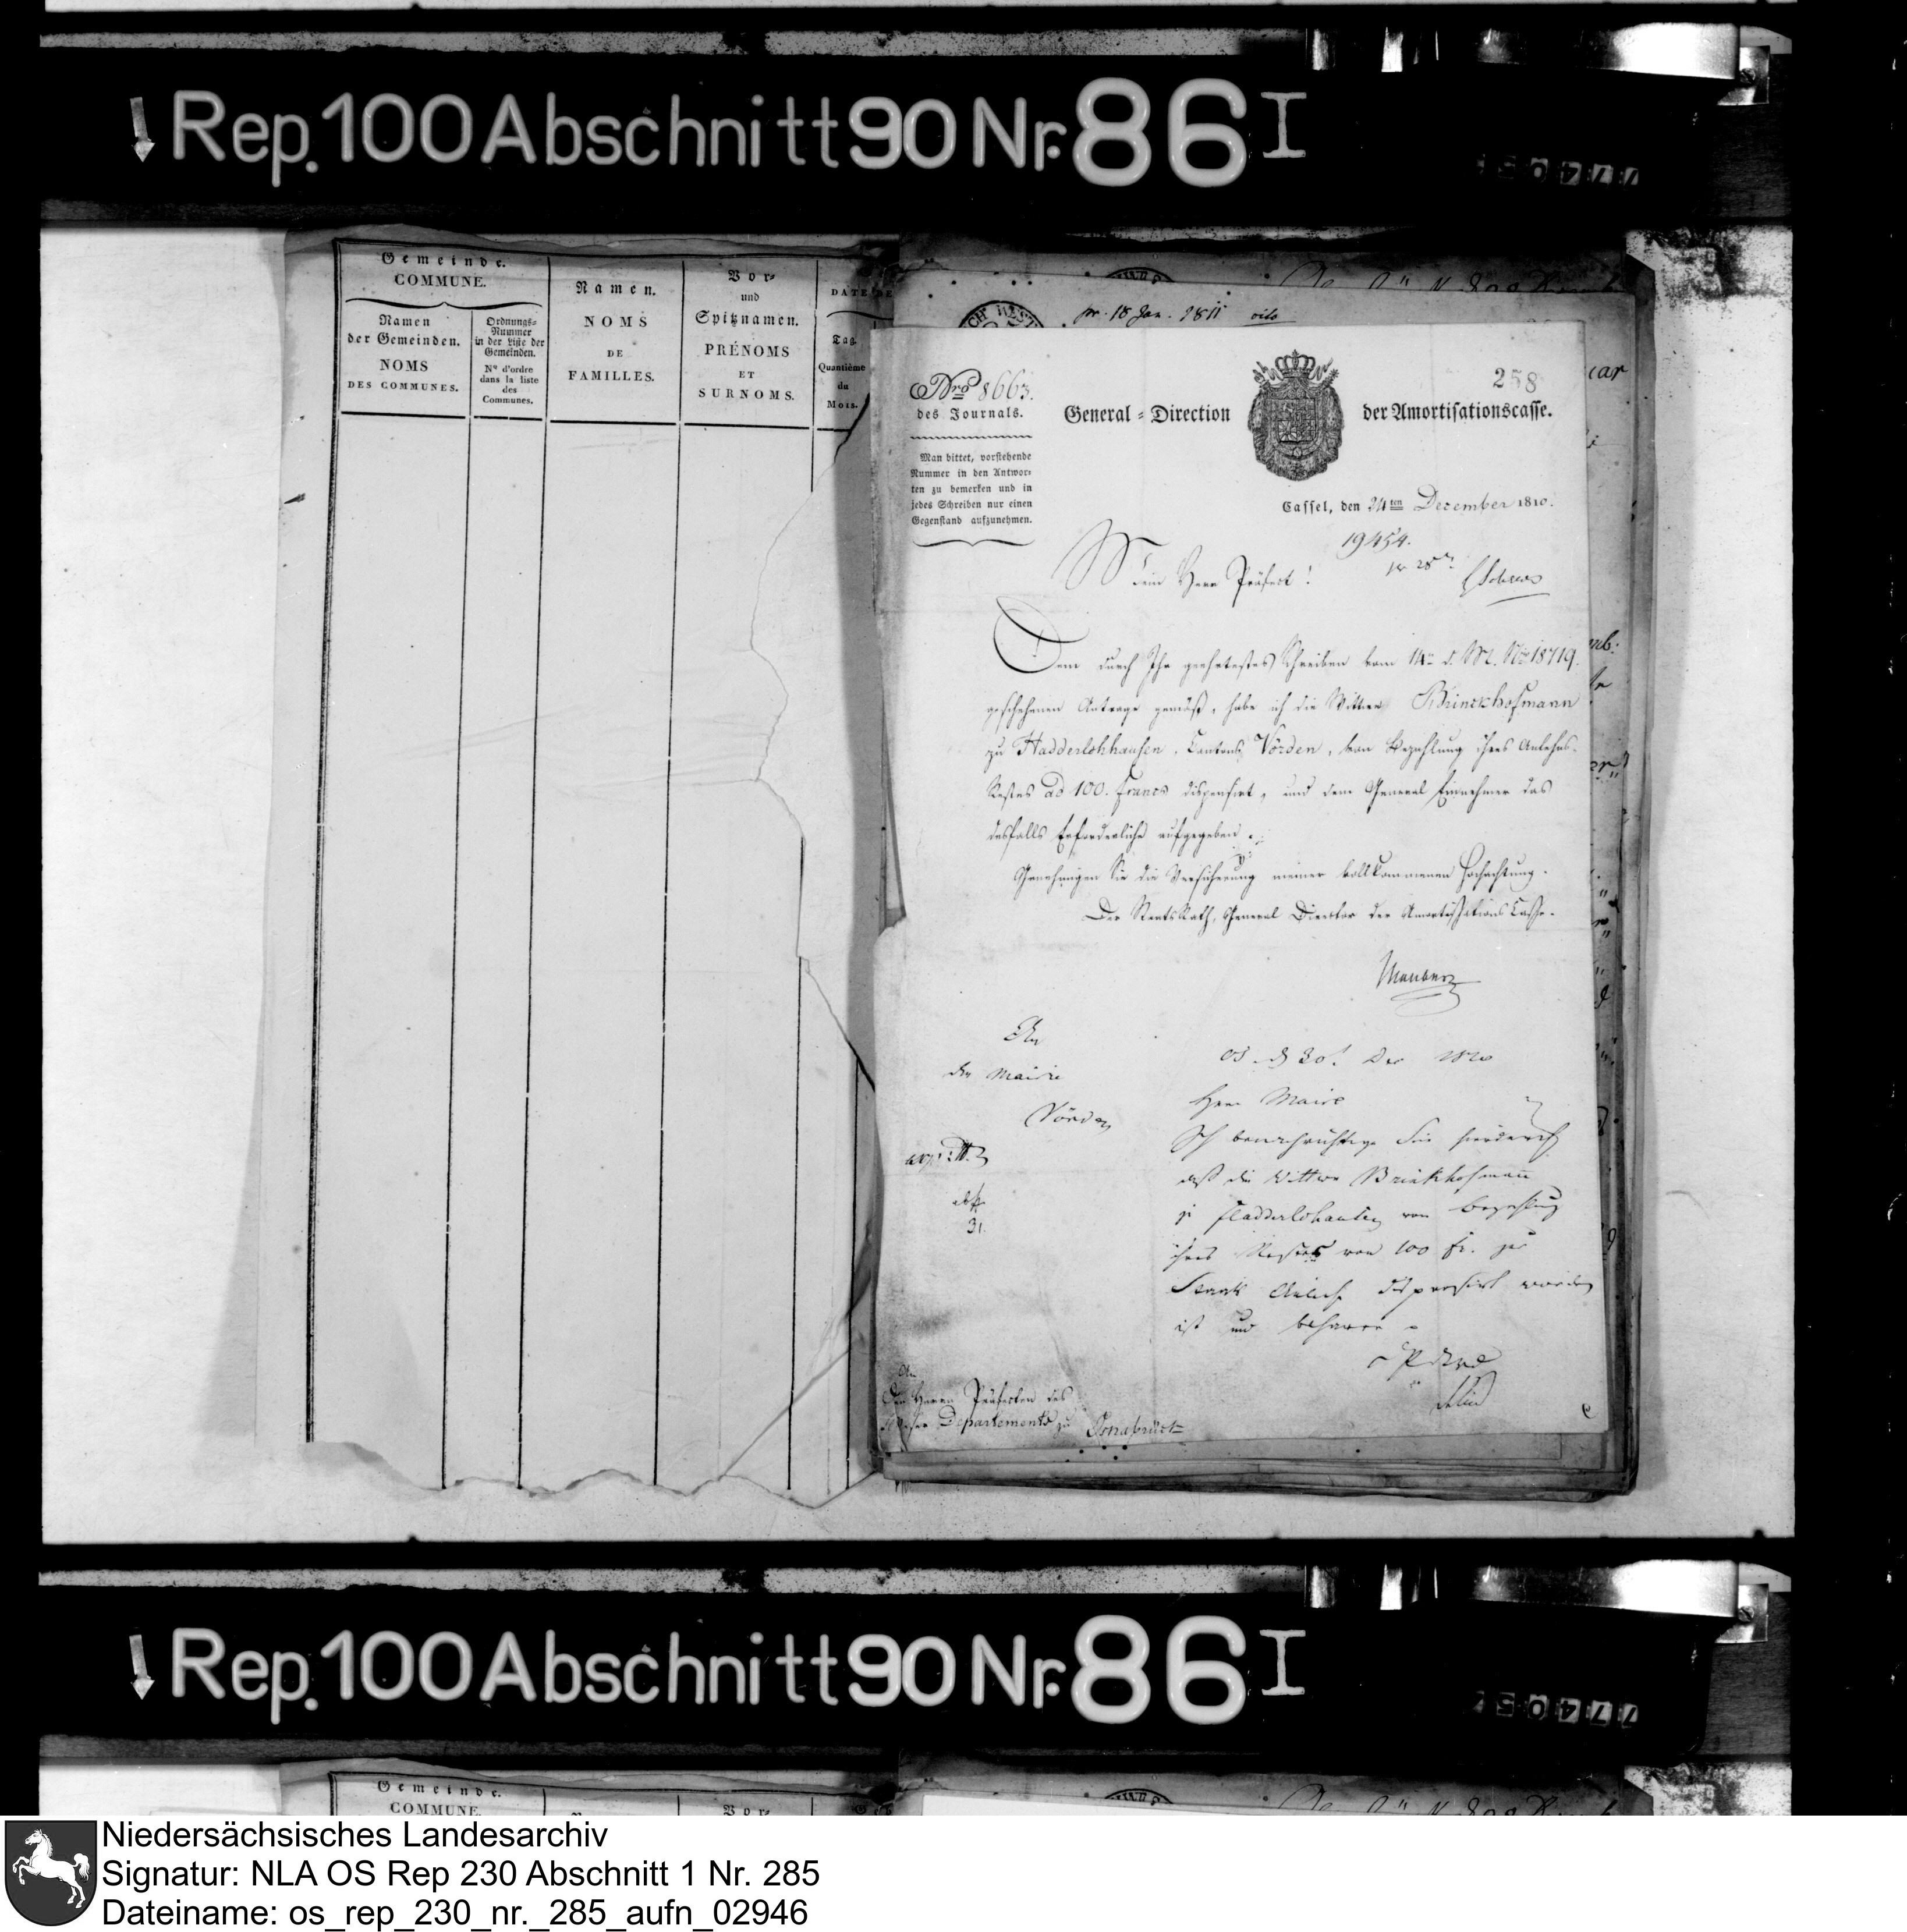 Rep. 100 Abschnitt 90 Nr. 86 I
Gemeinde.
COMMUNE.
Namen
der Gemeinden.
NOMS
DES COMMUNES.
Ordnungs-
Nummer
in der Liste der
Gemeinden.
N° d'ordre
dans la liste
des
Communes.
Namen.
NOMS
DE
FAMILLES.
Vor-
und
Spitznamen.
PRÉNOMS
ET
SURNOMS.
DATE DE
Tag.
Quantième
du
Mois.
pr. 18 Jan. 1811 cito
258
Nro 8663.
des Journals.
Man bittet, vorstehende
Nummer in den Antwor-
ten zu bemerken und in
jedes Schreiben nur einen
Gegenstand aufzunehmen.
General-Direction der Amortisationscasse.
Cassel, den 24ten December 1810.
19454.
pr 28
Mein Herr Präfect!
Dem durch Ihr geehrtestes Schreiben vom 14ten d. M. Nro 18719.
geschehenen Antrage gemäß, habe ich die Wittwe Brinckhofmann
zu Hadderlohhausen, Cantons Vörden, von Bezahlung ihres Anlehns-
Restes ad 100. Francs dispensirt, und dem General Einnehmer das
desfalls Erforderliche aufgegeben.
Genehmigen Sie die Versicherung meiner vollkommenen Hochachtung.
Der StaatsRath, General Director der Amortisations Casse.
An
den Maire
Vörden
31.
Os. d 30t Dec 1810
Herr Maire
Ich benachrichtige Sie hierdurch
daß die Wittwe Brinkhofmann
zu Fladderlohausen von Bezahlung
ihres Restes von 100 fr. zur
Staats Anleihe dispensirt worden
ist und beharre
An
Den Herrn Präfecten des
Weser Departements zu Osnabrück
Rep. 100 Abschnitt 90 Nr. 86 I
Gemeinde.
COMMUNE.
Vor-
Niedersächsisches Landesarchiv
Signatur: NLA OS Rep 230 Abschnitt 1 Nr. 285
Dateiname: os_rep_230_nr._285_aufn_02946